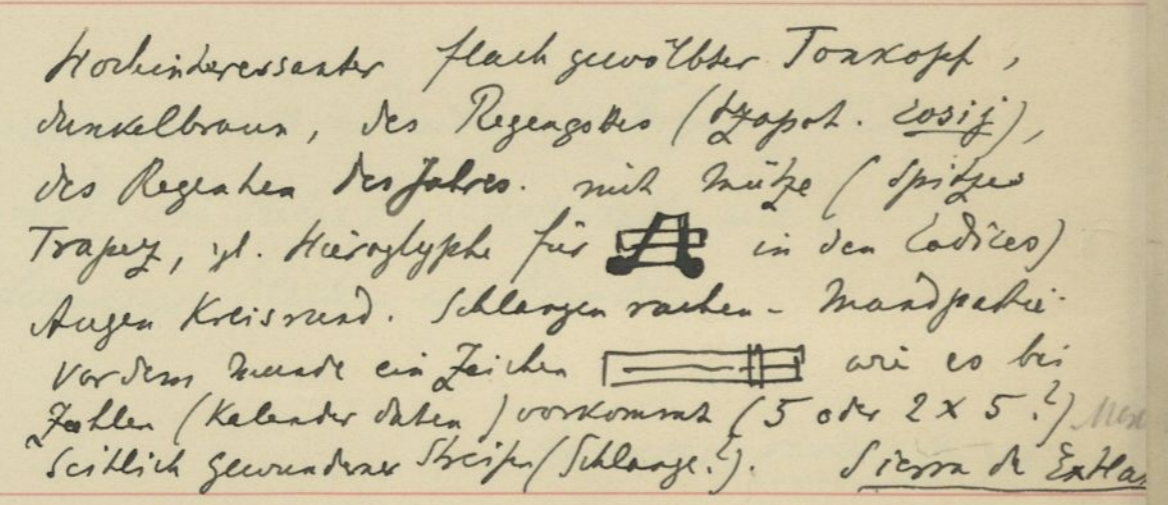 Hochinteressanter flach gewölbter Tonkopf,
dunkelbraun, des Regengottes (tzapot. Cosij),
des Regenten des Jahres. mit Mütze (spitzes
Trapez, vgl. Hieroglyphe für in den Codices)
Augen Kreisrund. Schlangenrachen-Mundpartie.
Vor dem Munde ein Zeichen wie es bei
Zahlen (Kalenderdaten) vorkommt (5 oder 2 x 5?)
Seitlich gewundener Streifen (Schlange?). Sierra de